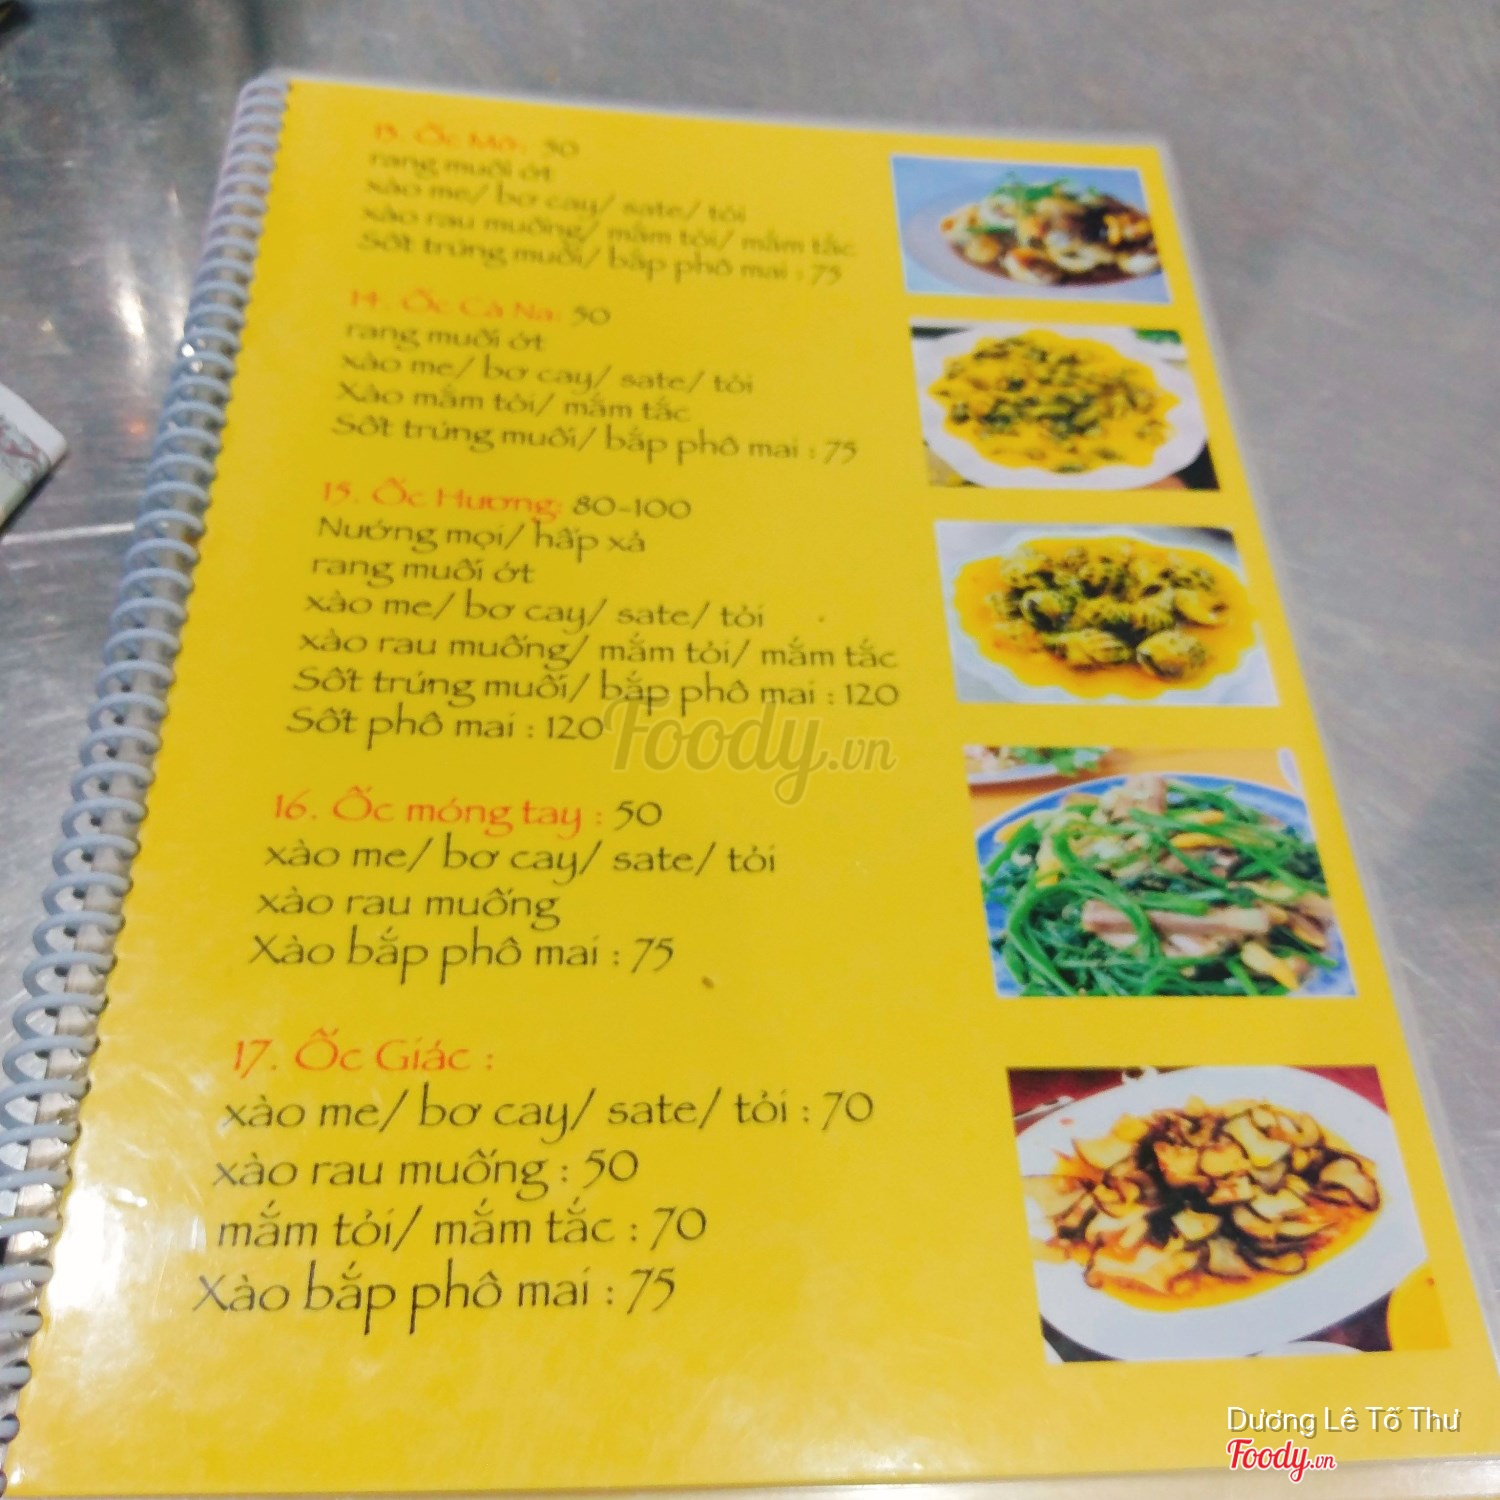 13. Ốc Mỡ: 50
rang muối ớt
xào me/ bơ cay/ sate/ tỏi
xào rau muống/ mắm tỏi/ mắm tắc
Sốt trứng muối/ bắp phô mai : 75
14. Ốc Cà Na: 50
rang muối ớt
xào me/ bơ cay/ sate/ tỏi
Xào mắm tỏi/ mắm tắc
Sốt trứng muối/ bắp phô mai : 75
15. Ốc Hương: 80-100
Nướng mọi/ hấp xả
rang muối ớt
xào me/ bơ cay/ sate/ tỏi
xào rau muống/ mắm tỏi/ mắm tắc
Sốt trứng muối/ bắp phô mai : 120
Sốt phô mai : 120
Foody.vn
16. Ốc móng tay : 50
xào me/ bơ cay/ sate/ tỏi
xào rau muống
Xào bắp phô mai : 75
17. Ốc Giác :
xào me/ bơ cay/ sate/ tỏi : 70
xào rau muống : 50
mắm tỏi/ mắm tắc : 70
Xào bắp phô mai : 75
Dương Lê Tố Thư
Foody.vn